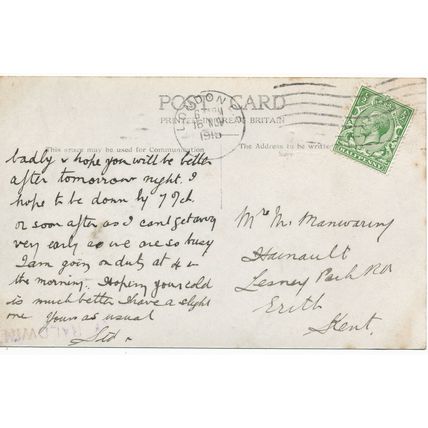 POST CARD
PRINTED IN GREAT BRITAIN
LONDON
NOV
This space may be used for Communication
The Address to be written
badly & hope you will be better
after tomorrow night. I
hope to be down by 7
or soon after as I cant get away
very early as we are so busy
I am going on duty at 4 in
the morning. Hoping your cold
is much better I have a slight
one Yours as usual
Sid
Mrs M. Manwaring
Hainault
Lesney Park Rd
Erith
Kent.
BALDWIN